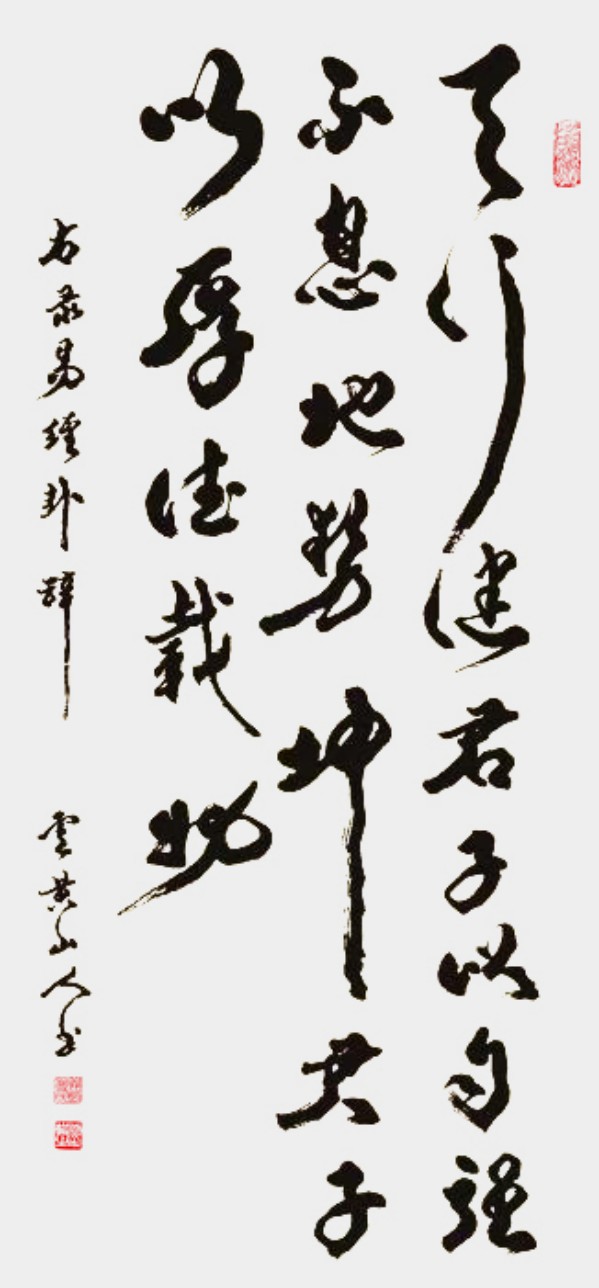 天行健君子以自强
不息地势坤君子
以厚德载物
右录易经卦辞 云黄山人书